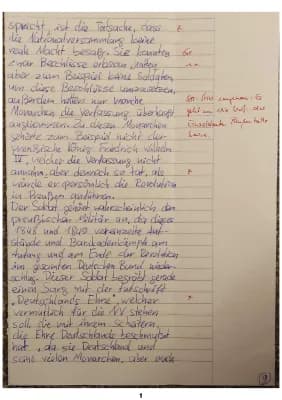 spricht, ist die Tatsache, dass
die Nationalversammlung keine
reale Macht besaß. Sie konnten
zwar Beschlüsse erlassen, hatten
aber zum Beispiel keine Soldaten
um diese Beschlüsse umzusetzen,
außerdem hatten nur manche
Monarchen die Verfassung überhaupt
angenommen. Zu diesen Monarchen
gehörte zum Beispiel nicht der
preußische König Friedrich Wilhelm
IV., welcher die Verfassung nicht
annahm, aber dennoch so tat, als
würde er persönlich die Revolution
in Preußen anführen.
Der Soldat gehört wahrscheinlich dem
preußischen Militär an, da dieses
1848 und 1849 vereinzelte Auf-
stände und Barrikadenkämpfe am
Anfang und am Ende der Revolution
im gesamten Deutschen Bund nieder-
schlug. Dieser Soldat begräbt gerade
einen Sarg mit der Aufschrift
„Deutschlands Ehre", welcher
vermutlich für die NV stehen
soll, die mit ihrem Scheitern
die Ehre Deutschlands beschmutzt
hat, da sie Deutschland und
seine vielen Monarchen, aber auch
9
1